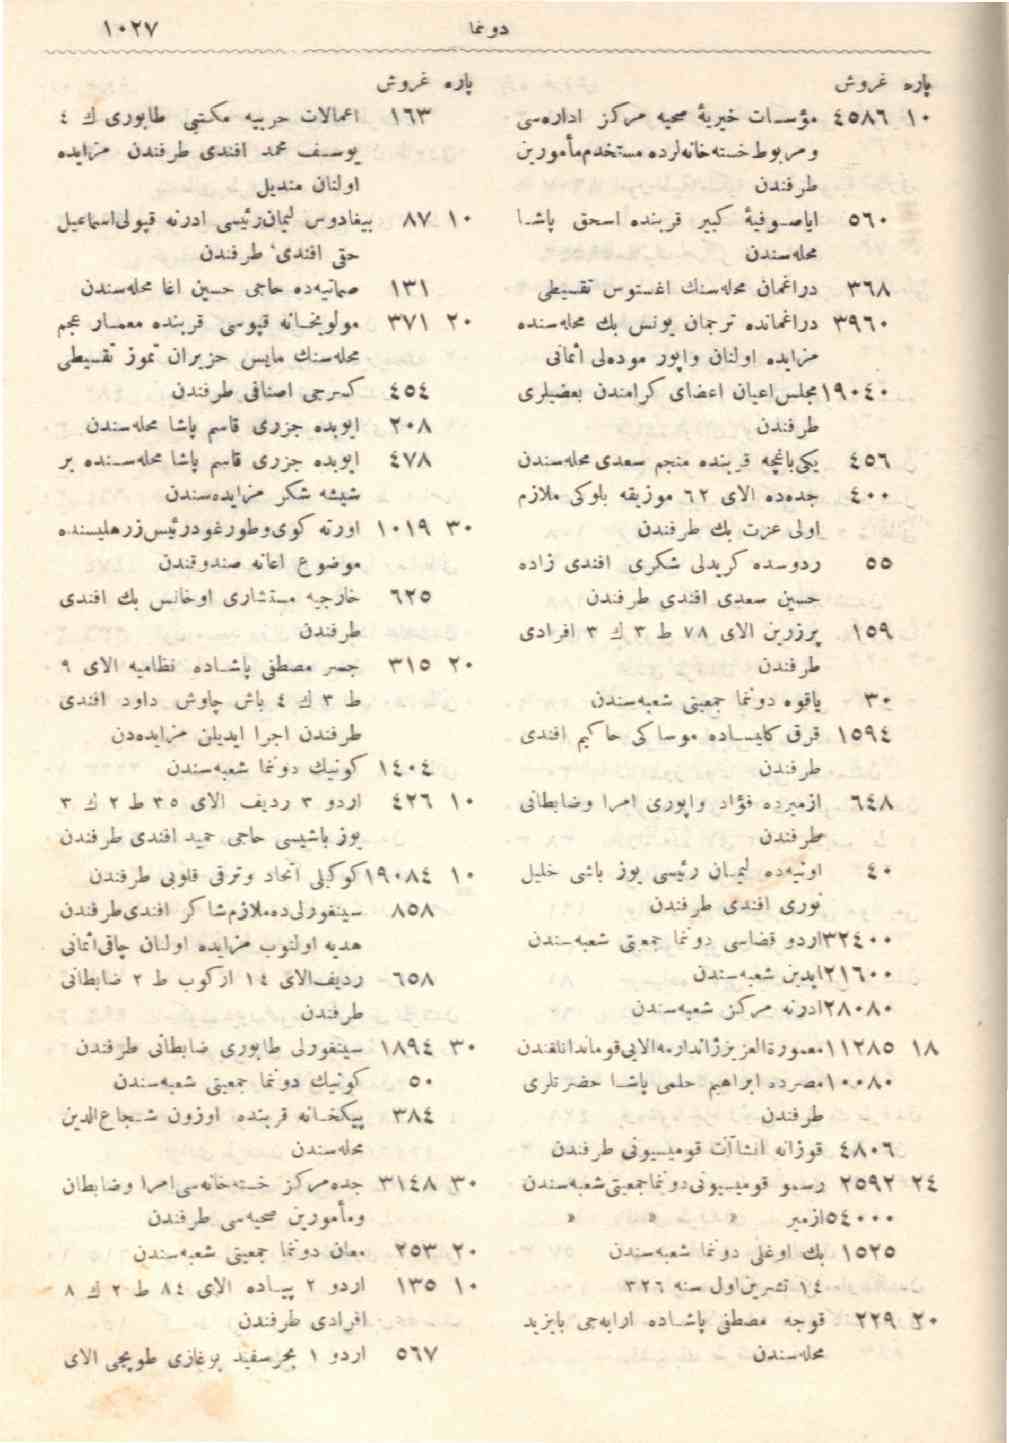 دوننما ١٠٢٧
پاره غروش
١٠ ٤٥٨٦ مؤسسات خيريهٔ صحيه مركز اداره‌سى
ومربوط خسته‌خانه‌لرده مستخدم مأمورين
طرفندن
٥٦٠ اياصوفيهٔ كبير قربنده اسحق پاشا
محله‌سندن
٣٦٨ دراغمان محله‌سنك اغستوس تقسيطى
٣٩٦٠ دراغمانده ترجمان يونس بك محله‌سنده
مزايده اولنان واپور موده‌لى اثمانى
١٩٠٤٠ مجلس اعيان اعضاى كرامندن بعضيلرى
طرفندن
٤٥٦ يكى باغچه قربنده منجم سعدى محله‌سندن
٤٠٠ جده‌ده الاى ٦٢ موزيقه بلوكى ملازم
اولى عزت بك طرفندن
٥٥ ردوسده كريدلى شكرى افندى زاده
حسين سعدى افندى طرفندن
١٥٩ پرزرين الاى ٧٨ ط ٣ ك ٣ افرادى
طرفندن
٣٠ ياقوه دوننما جمعيتى شعبه‌سندن
١٥٩٤ قرق كليساده موساكى حاكيم افندى
طرفندن
٦٤٨ ازميرده فؤاد واپورى امرا وضابطانى
طرفندن
٤٠ اونيه‌ده ليمان رئيسى يوز باشى خليل
نورى افندى طرفندن
٣٢٤٠٠ اردو قضاسى دوننما جمعيتى شعبه‌سندن
٢١٦٠٠ ايدين شعبه‌سندن
٢٨٠٨٠ ادرنه مركز شعبه‌سندن
١٨ ١١٢٨٥ معمورة العزيز ژاندارمه الايى قوماندانلغندن
١٠٠٨٠ مصرده ابراهيم حلمى پاشا حضرتلرى
طرفندن
٤٨٠٦ قوزانه انشاآت قوميسيونى طرفندن
٢٤ ٢٥٩٢ رسمو قوميسيونى دوننما جمعيتى شعبه‌سندن
٥٤٠٠٠ ازمير » » »
١٥٢٥ بك اوغلى دوننما شعبه‌سندن
١٤ تشرين اول سنه ٣٢٦
٢٠ ٢٢٩ قوجه مصطفى پاشاده ارابه‌جى بايزيد
محله‌سندن
پاره غروش
١٦٣ اعمالات حربيه مكتبى طابورى ك ٤
يوسف محمد افندى طرفندن مزايده
اولنان منديل
١٠ ٨٧ بيغادوس ليمان رئيسى ادرنه قپولى اسماعيل
حقى افندى طرفندن
١٣١ صماتيه‌ده حاجى حسين اغا محله‌سندن
٢٠ ٣٧١ مولويخانه قپوسى قربنده معمار عجم
محله‌سنك مايس حزيران تموز تقسيطى
٤٥٤ كسرجى اصنافى طرفندن
٢٠٨ ايوبده جزرى قاسم پاشا محله‌سندن
٤٧٨ ايوبده جزرى قاسم پاشا محله‌سنده بر
شيشه شكر مزايده‌سندن
٣٠ ١٠١٩ اورته كوى وطورغودرئيس زرهليسنده
موضوع اعانه صندوقندن
٦٢٥ خارجيه مستشارى اوخانس بك افندى
طرفندن
٢٠ ٣١٥ جسر مصطفى پاشاده نظاميه الاى ٩
ط ٣ ك ٤ باش چاوش داود افندى
طرفندن اجرا ايديلن مزايده‌دن
١٤٠٤ كونيك دوننما شعبه‌سندن
١٠ ٤٢٦ اردو ٣ رديف الاى ٣٥ ط ٢ ك ٣
يوز باشيسى حاجى حميد افندى طرفندن
١٠ ١٩٠٨٤ كوكبلى اتحاد وترقى قلوبى طرفندن
٨٥٨ سينفورلى‌ده ملازم شاكر افندى طرفندن
هديه اولنوب مزايده اولنان چاقى اثمانى
٦٥٨ رديف الاى ١٤ اركوب ط ٢ ضابطانى
طرفندن
٣٠ ١٨٩٤ سينفورلى طابورى ضابطانى طرفندن
٥٠ كونيك دوننما جمعيتى شعبه‌سندن
٣٨٤ پيكخانه قربنده اوزون شجاع الدين
محله‌سندن
٣٠ ٣١٤٨ جده مركز خسته‌خانه‌سى امرا وضابطان
ومأمورين صحيه‌سى طرفندن
٢٠ ٢٥٣ معان دوننما جمعيتى شعبه‌سندن
١٠ ١٣٥ اردو ٢ پياده الاى ٨٤ ط ٢ ك ٨
افرادى طرفندن
٥٦٧ اردو ١ بحرسفيد بوغازى طوپجى الاى